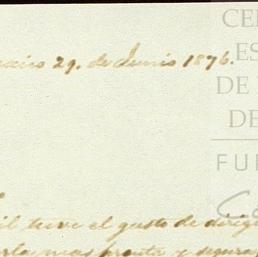 29. de Junio 1876.
CE
ES
DE
DE
FU
tuve el gusto de dirig
mas pronta y segura